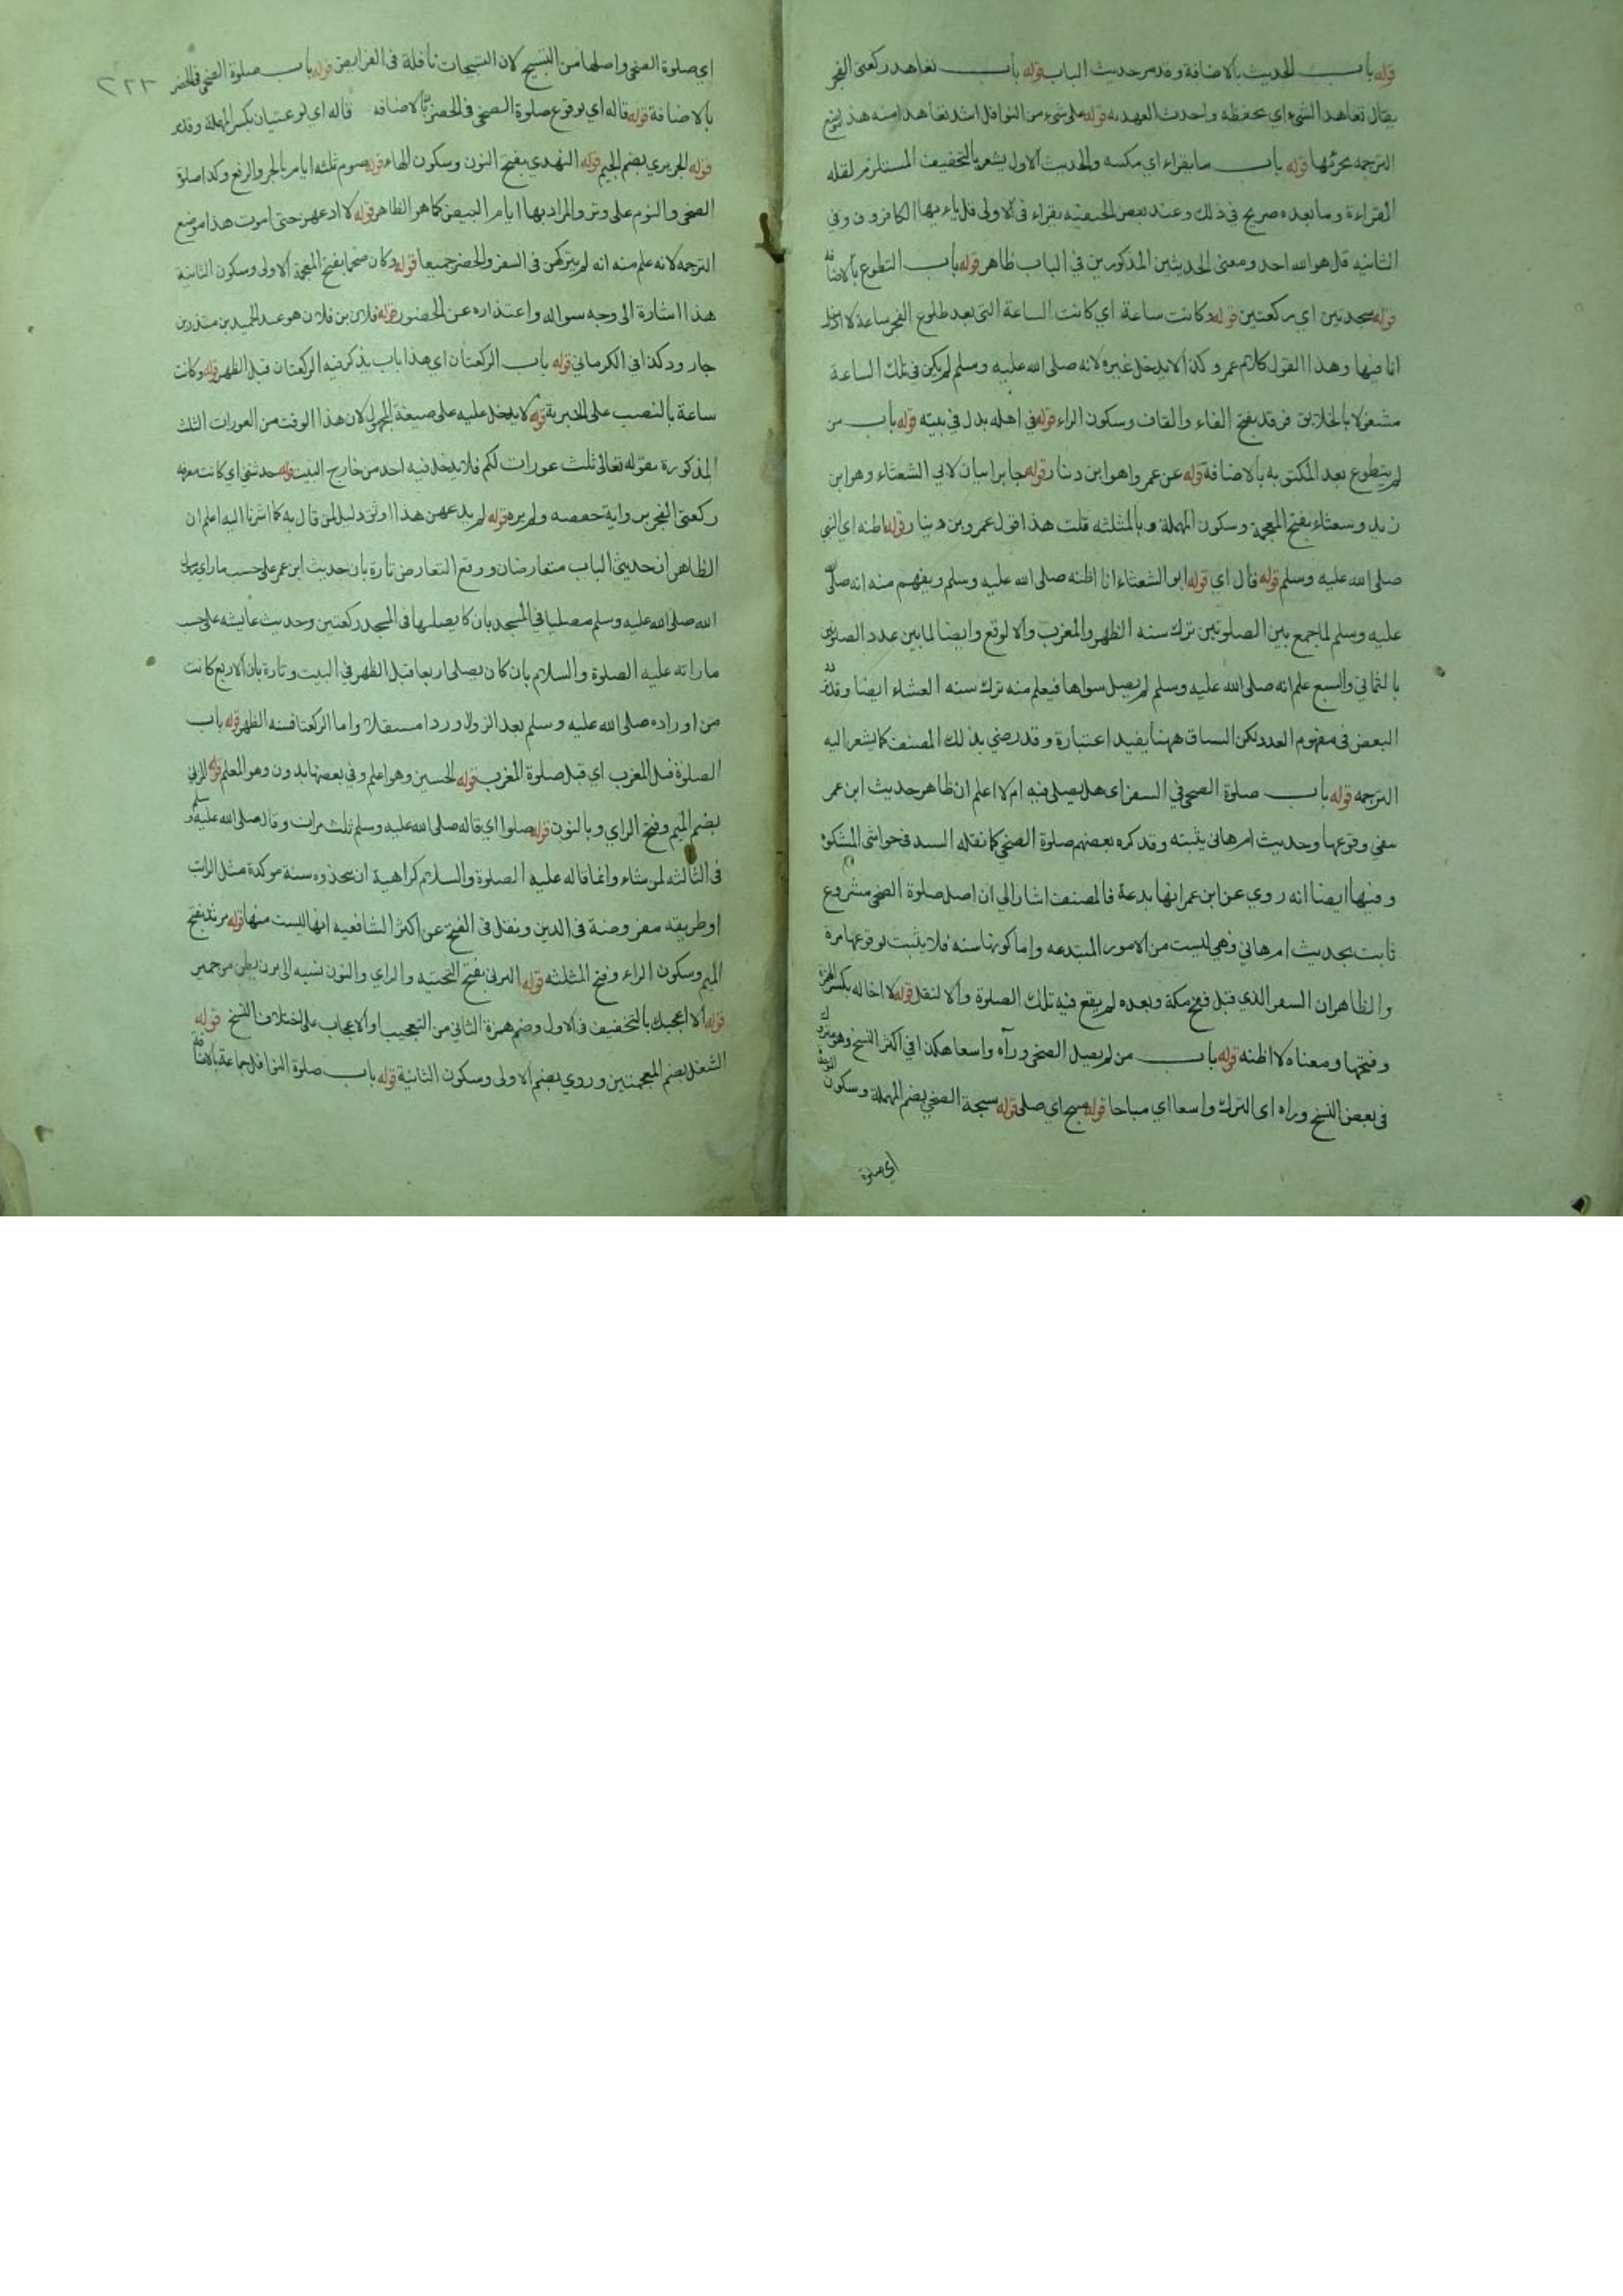 قوله باب الحديث بالاضافة وقد مر حديث الباب قوله باب تعاهد ركعتي الفجر
يقال تعاهد الشيء اي تحفظه واحدث العهد به قوله على شيء من النوافل اشد تعاهدا منه هذ موضع
الترجمه بجزئها قوله باب ما يقراء اي مكسه والحديث الاول يشعر بالتخفيف المستلزم لقله
القراءة وما بعده صريح في ذلك وعند بعض الحنفيه يقراء في الاولى قل ياء يها الكافرون وفي
الثانيه قل هو الله احد ومعنى الحديثين المذكورين في الباب ظاهر قوله باب التطوع بالاضافة
قوله سجدتين اي ركعتين قوله وكانت ساعة اي كانت الساعة التي بعد طلوع الفجر ساعة لا ادخل
انا فيها وهذا القول كلام عمر وكذا لا يدخل غيره لانه صلى الله عليه وسلم لم يكن في تلك الساعة
مشغولا بالخلايق فرقد بفتح الفاء والقاف وسكون الراء قوله في اهله بدل في بيته قوله باب من
لم يتطوع بعد المكتوبه بالاضافة قوله عن عمر واهو ابن دنار قوله جابرا بيان لابي الشعثاء وهو ابن
زيد وسعثاء بفتح المعجمة وسكون المهملة وبالمثلثه قلت هذا قول عمرو بن دينار قوله اظنه اي النبي
صلى الله عليه وسلم قوله قال اي قوله ابو الشعثاء انا اظنه صلى الله عليه وسلم ويفهم منه انه صلى الله
عليه وسلم لما جمع بين الصلوتين ترك سنه الظهر والمغرب والا لوقع وايضا لما بين عدد الصلوتين
بالثماني والسبع علم انه صلى الله عليه وسلم لم يصل سواها فيعلم منه ترك سنه العشاء ايضا وقدره
البعض في مفهوم العدد لكن السباق ههنا يفيد اعتبارة وقد رضي بذلك المصنف كما يشعر اليه
الترجمه قوله باب صلوة الضحى في السفر اى هل يصلى فيه ام لا اعلم ان ظاهر حديث ابن عمر
ينفي وقوعها وحديث ام هاني يثبته وقد كره بعضهم صلوة الضحى كما نقله السيد في حواشى المشكوة
وفيها ايضا انه روي عن ابن عمر انها بدعة فالمصنف اشار الي ان اصل صلوة الضحى مشروع
ثابت بحديث ام هاني وهي ليست من الامور المبتدعه واما كونها سنه فلا يثبت لوقوعها مرة
والظاهر ان السفر الذي قبل فتح مكة وبعده لم يقع فيه تلك الصلوة والا لنقل قوله لا اخاله بكسر الهمزة
وفتحها ومعناه لا اظنه قوله باب من لم يصل الضحى ورآه واسعا هكذا في اكثر النسخ وهو متروك
في بعض النسخ وراه اى الترك واسعا اي مباحا قوله سبح اي صلى قوله سبحة الضحى بضم المهملة وسكون الموحدة
اي صلوة
٢٢٣
اي صلوة الضحى واصلها من التسبيح لان التسبيحات نافلة في الفرايض قوله باب صلوة الضحى في الحضر
بالاضافة قوله قاله اي بوقوع صلوة الضحى في الحضر بالاضافه قاله اي لوعتبان بكسر المهملة وقدمر
قوله الجريري بضم الجيم قوله النهدي بفتح النون وسكون الهاء قوله صوم ثلثه ايام بالجر والرفع وكذا صلوة
الضحى والنوم على وتر والمراد بها ايام البيض كما هو الظاهر قوله لا ادعهن حتى اموت هذا موضع
الترجمه لانه علم منه انه لم يتركهن في السفر والحضر جميعا قوله وكان ضخما بفتح المعجمة الاولى وسكون الثانية
هذا اشارة الى وجه سواله واعتذاره عن الحضور قوله فلان بن فلان هو عبد الحميد بن منذر بن
جارود كذا في الكرماني قوله باب الركعتان اي هذا باب يذكر فيه الركعتان قبل الظهر قوله وكانت
ساعة بالنصب على الخبرية قوله لا يدخل عليه على صيغة المجهول لان هذا الوقت من العورات الثلث
المذكورة بقوله تعالى ثلث عورات لكم فلا يدخل فيه احد من خارج البيت قوله حدثتني اي كانت معرفه
ركعتي الفجر برواية حفصه ولم يره قوله لم يدعهن هذا اوثق دليل لمن قال به كما اشرنا اليه اعلم ان
الظاهر ان حديثي الباب متعارضان ورفع التعارض تارة بان حديث ابن عمر على حسب ما راى رسول
الله صلى الله عليه وسلم مصليا في المسجد بان كا يصليها في المسجد ركعتين وحديث عايشه على حسب
ما راته عليه الصلوة والسلام بان كان يصلى اربعا قبل الظهر في البيت وتارة بان الاربع كانت
من اوراده صلى الله عليه وسلم بعد الزوال وردا مستقلا واما الركعتا فسنه الظهر قوله باب
الصلوة قبل المغرب اي قبل صلوة المغرب قوله الحسين وهو اعلم وفي بعضها بدون وهو المعلم قوله المزني
بضم الميم وفتح الزاي وبالنون قوله صلوا اي قاله صلى الله عليه وسلم ثلث مرات وقال صلى الله عليه وسلم
في الثالثه لمن شاء وانما قاله عليه الصلوة والسلام كراهية ان يتخذوه سنة موكدة مثل الراتب
او طريقه مفروضة في الدين ونقل في الفتح عن اكثر الشافعيه انها ليست منها قوله مرثد بفتح
الميم وسكون الراء وفتح المثلثه قوله اليزني بفتح التحتيه والزاي والنون نسبه الى يزن بطن من حمير
قوله الا اعجبك بالتخفيف في الاول وضم همزة الثاني من التعجيب او الاعجاب على اختلاف النسخ قوله
الشغل بضم المعجمتين وروي بضم الاولى وسكون الثانية قوله باب صلوة النوافل جماعة بالاضافة